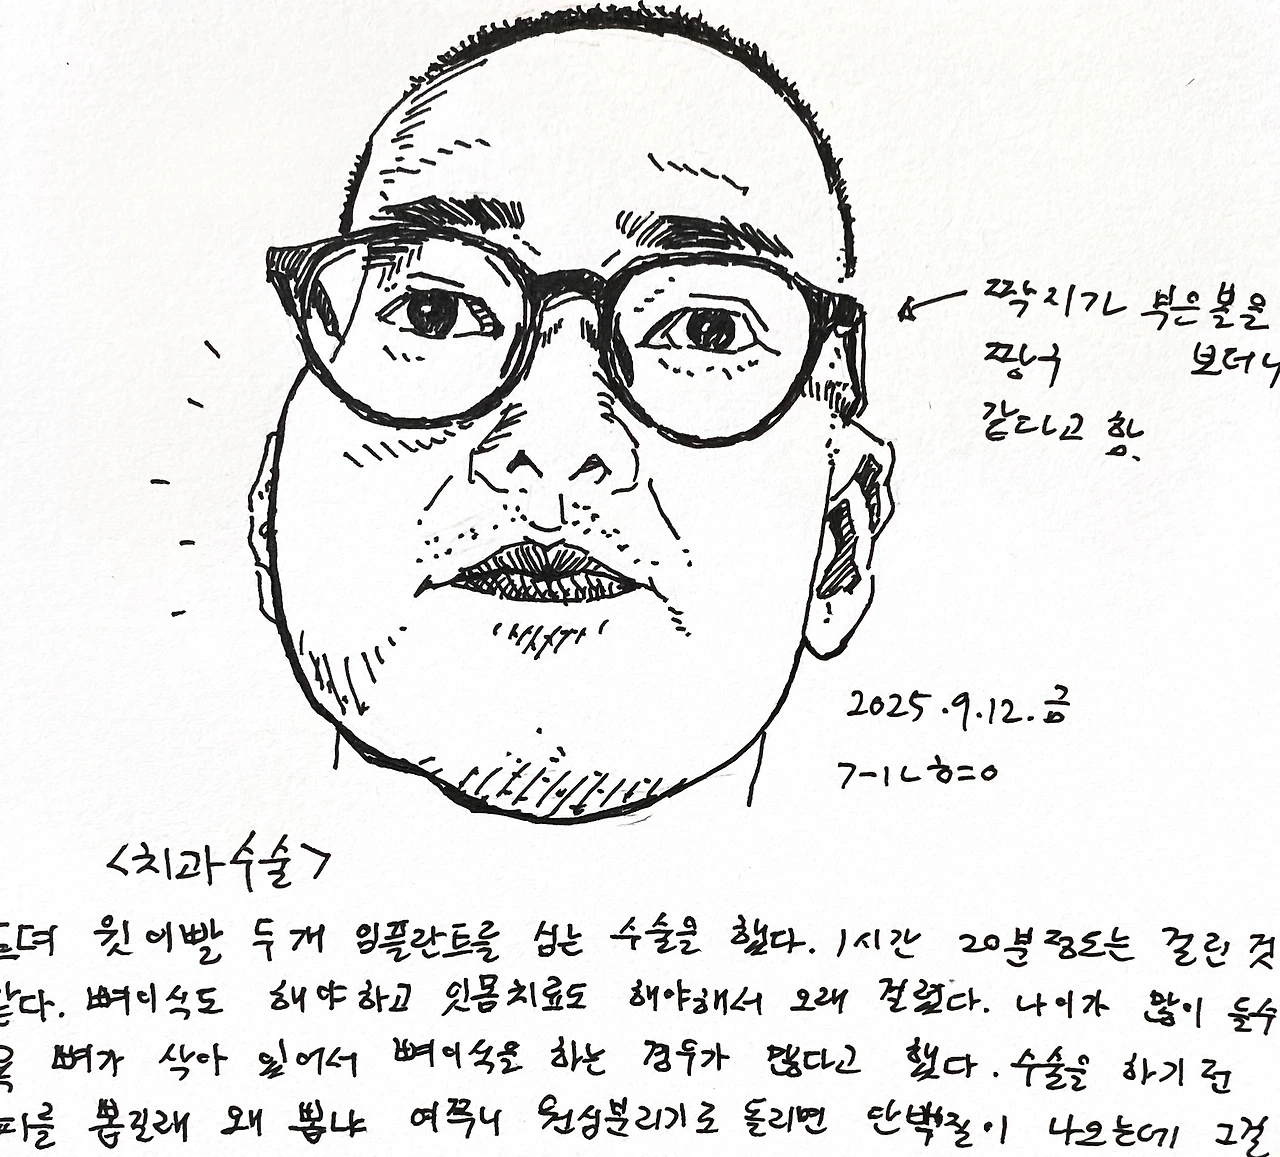 짝지가 부은볼을
짱구 보더니
같다고 함.
2025.9.12.금
<치과수술>
드뎌 윗이빨 두개 임플란트를 심는 수술을 했다. 1시간 20분정도는 걸린 것
같다. 뼈이식도 해야하고 잇몸치료도 해야해서 오래 걸렸다. 나이가 많이 들수
록 뼈가 삭아 있어서 뼈이식을 하는 경우가 많다고 했다. 수술을 하기전
피를 뽑길래 왜 뽑냐 여쭈니 원심분리기로 돌리면 단백질이 나오는데 그걸